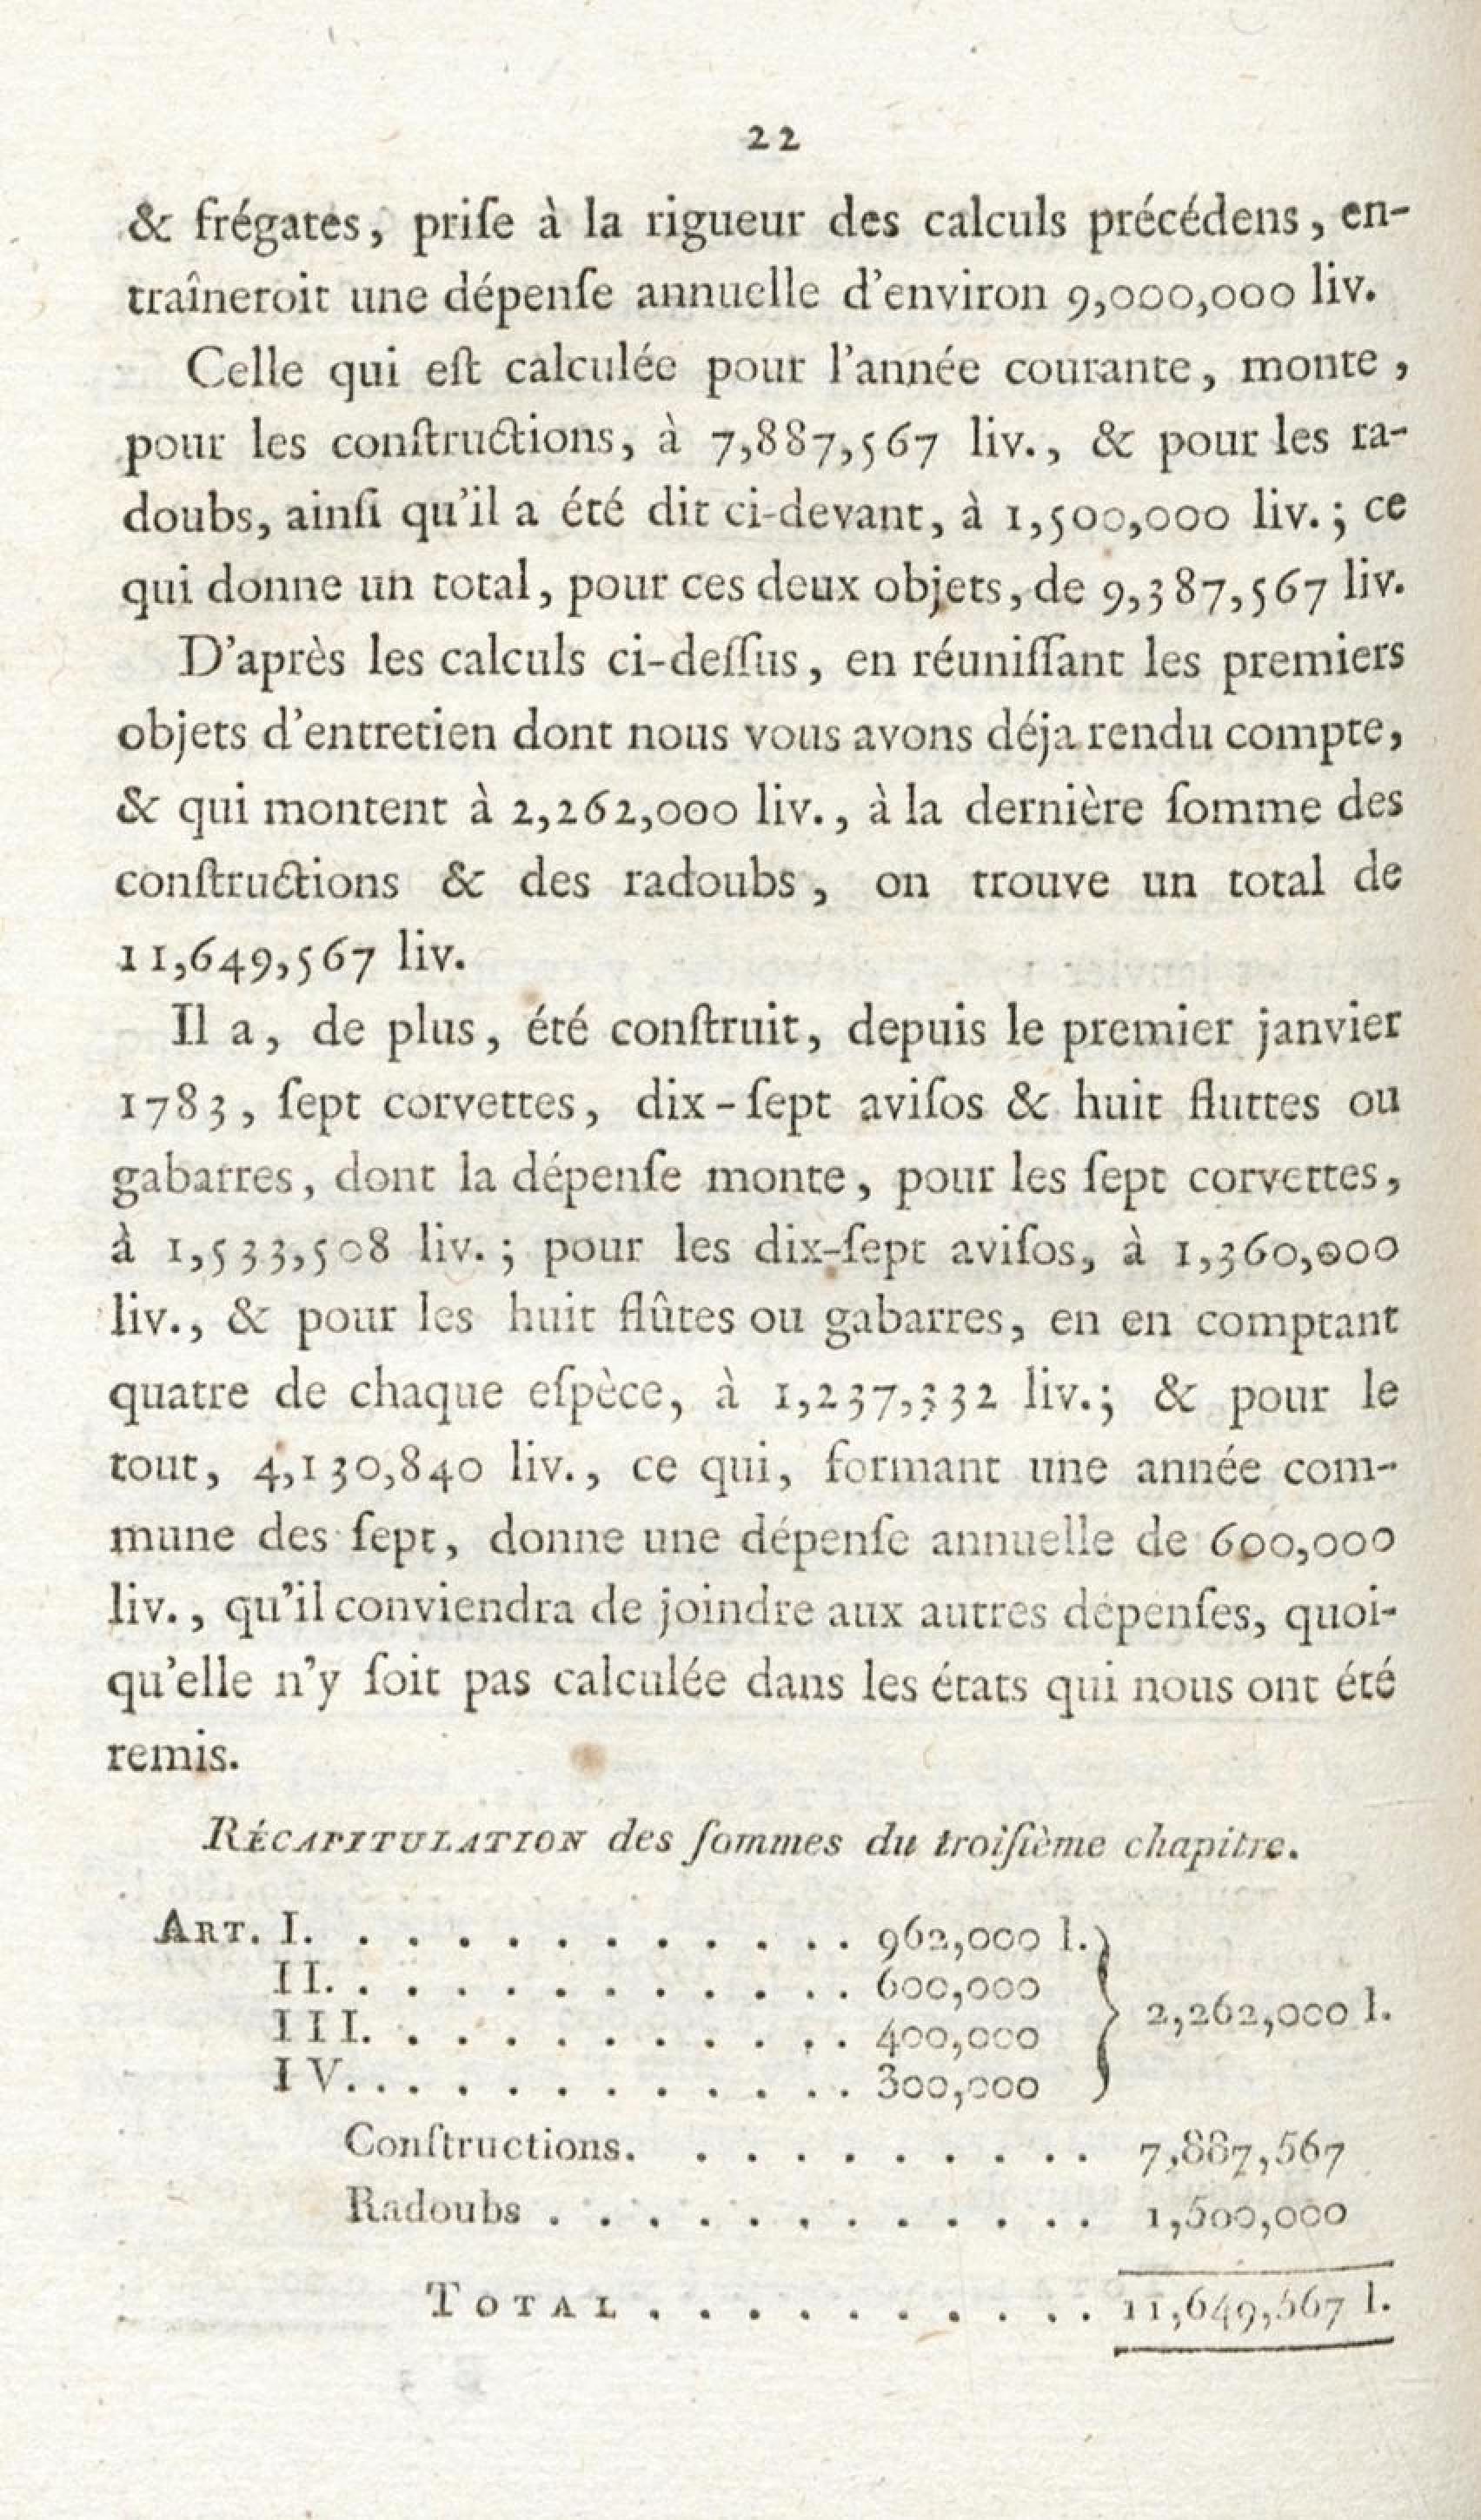 22
& frégates, priſe à la rigueur des calculs précédens, en-
traîneroit une dépenſe annuelle d'environ 9,000,000 liv.
Celle qui eſt calculée pour l'année courante, monte,
pour les conſtructions, à 7,887,567 liv., & pour les ra-
doubs, ainſi qu'il a été dit ci-devant, à 1,500,000 liv.; ce
qui donne un total, pour ces deux objets, de 9,387,567 liv.
D'après les calculs ci-deſſus, en réuniſſant les premiers
objets d'entretien dont nous vous avons déja rendu compte,
& qui montent à 2,262,000 liv., à la dernière ſomme des
conſtructions & des radoubs, on trouve un total de
11,649,567 liv.
Il a, de plus, été conſtruit, depuis le premier janvier
1783, ſept corvettes, dix-ſept aviſos & huit fluttes ou
gabarres, dont la dépenſe monte, pour les ſept corvettes,
à 1,533,508 liv.; pour les dix-ſept aviſos, à 1,360,000
liv., & pour les huit flûtes ou gabarres, en en comptant
quatre de chaque eſpèce, à 1,237,332 liv.; & pour le
tout, 4,130,840 liv., ce qui, formant une année com-
mune des ſept, donne une dépenſe annuelle de 600,000
liv., qu'il conviendra de joindre aux autres dépenſes, quoi-
qu'elle n'y ſoit pas calculée dans les états qui nous ont été
remis.
RÉCAPITULATION des ſommes du troiſième chapitre.
ART. I. . . . . . . . . . . . 962,000 l.
II. . . . . . . . . . . . 600,000
III. . . . . . . . . . . 400,000
IV. . . . . . . . . . . . 300,000
2,262,000 l.
Conſtructions. . . . . . . . . . 7,887,567
Radoubs . . . . . . . . . . . . 1,500,000
TOTAL . . . . . . . . . . 11,649,567 l.